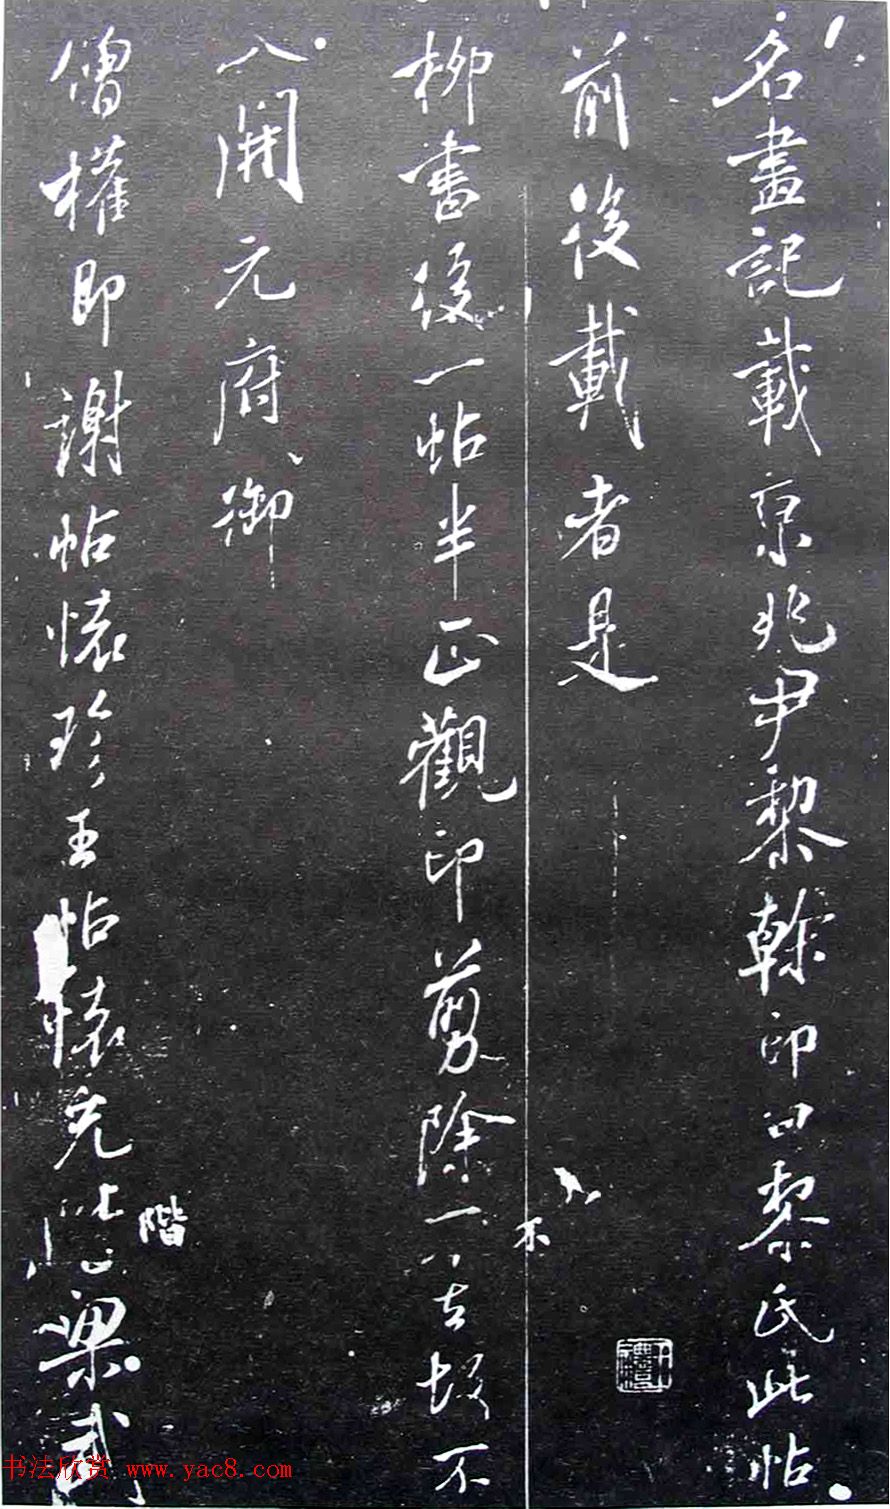 名畫記載京兆尹黎幹印曰黎氏此帖
前後載者是
柳書後一帖半正觀印剪除一古故不
入開元府御
僧權即謝帖懷珍王帖懷充此梁武
階
不
书法欣赏 www.yac8.com